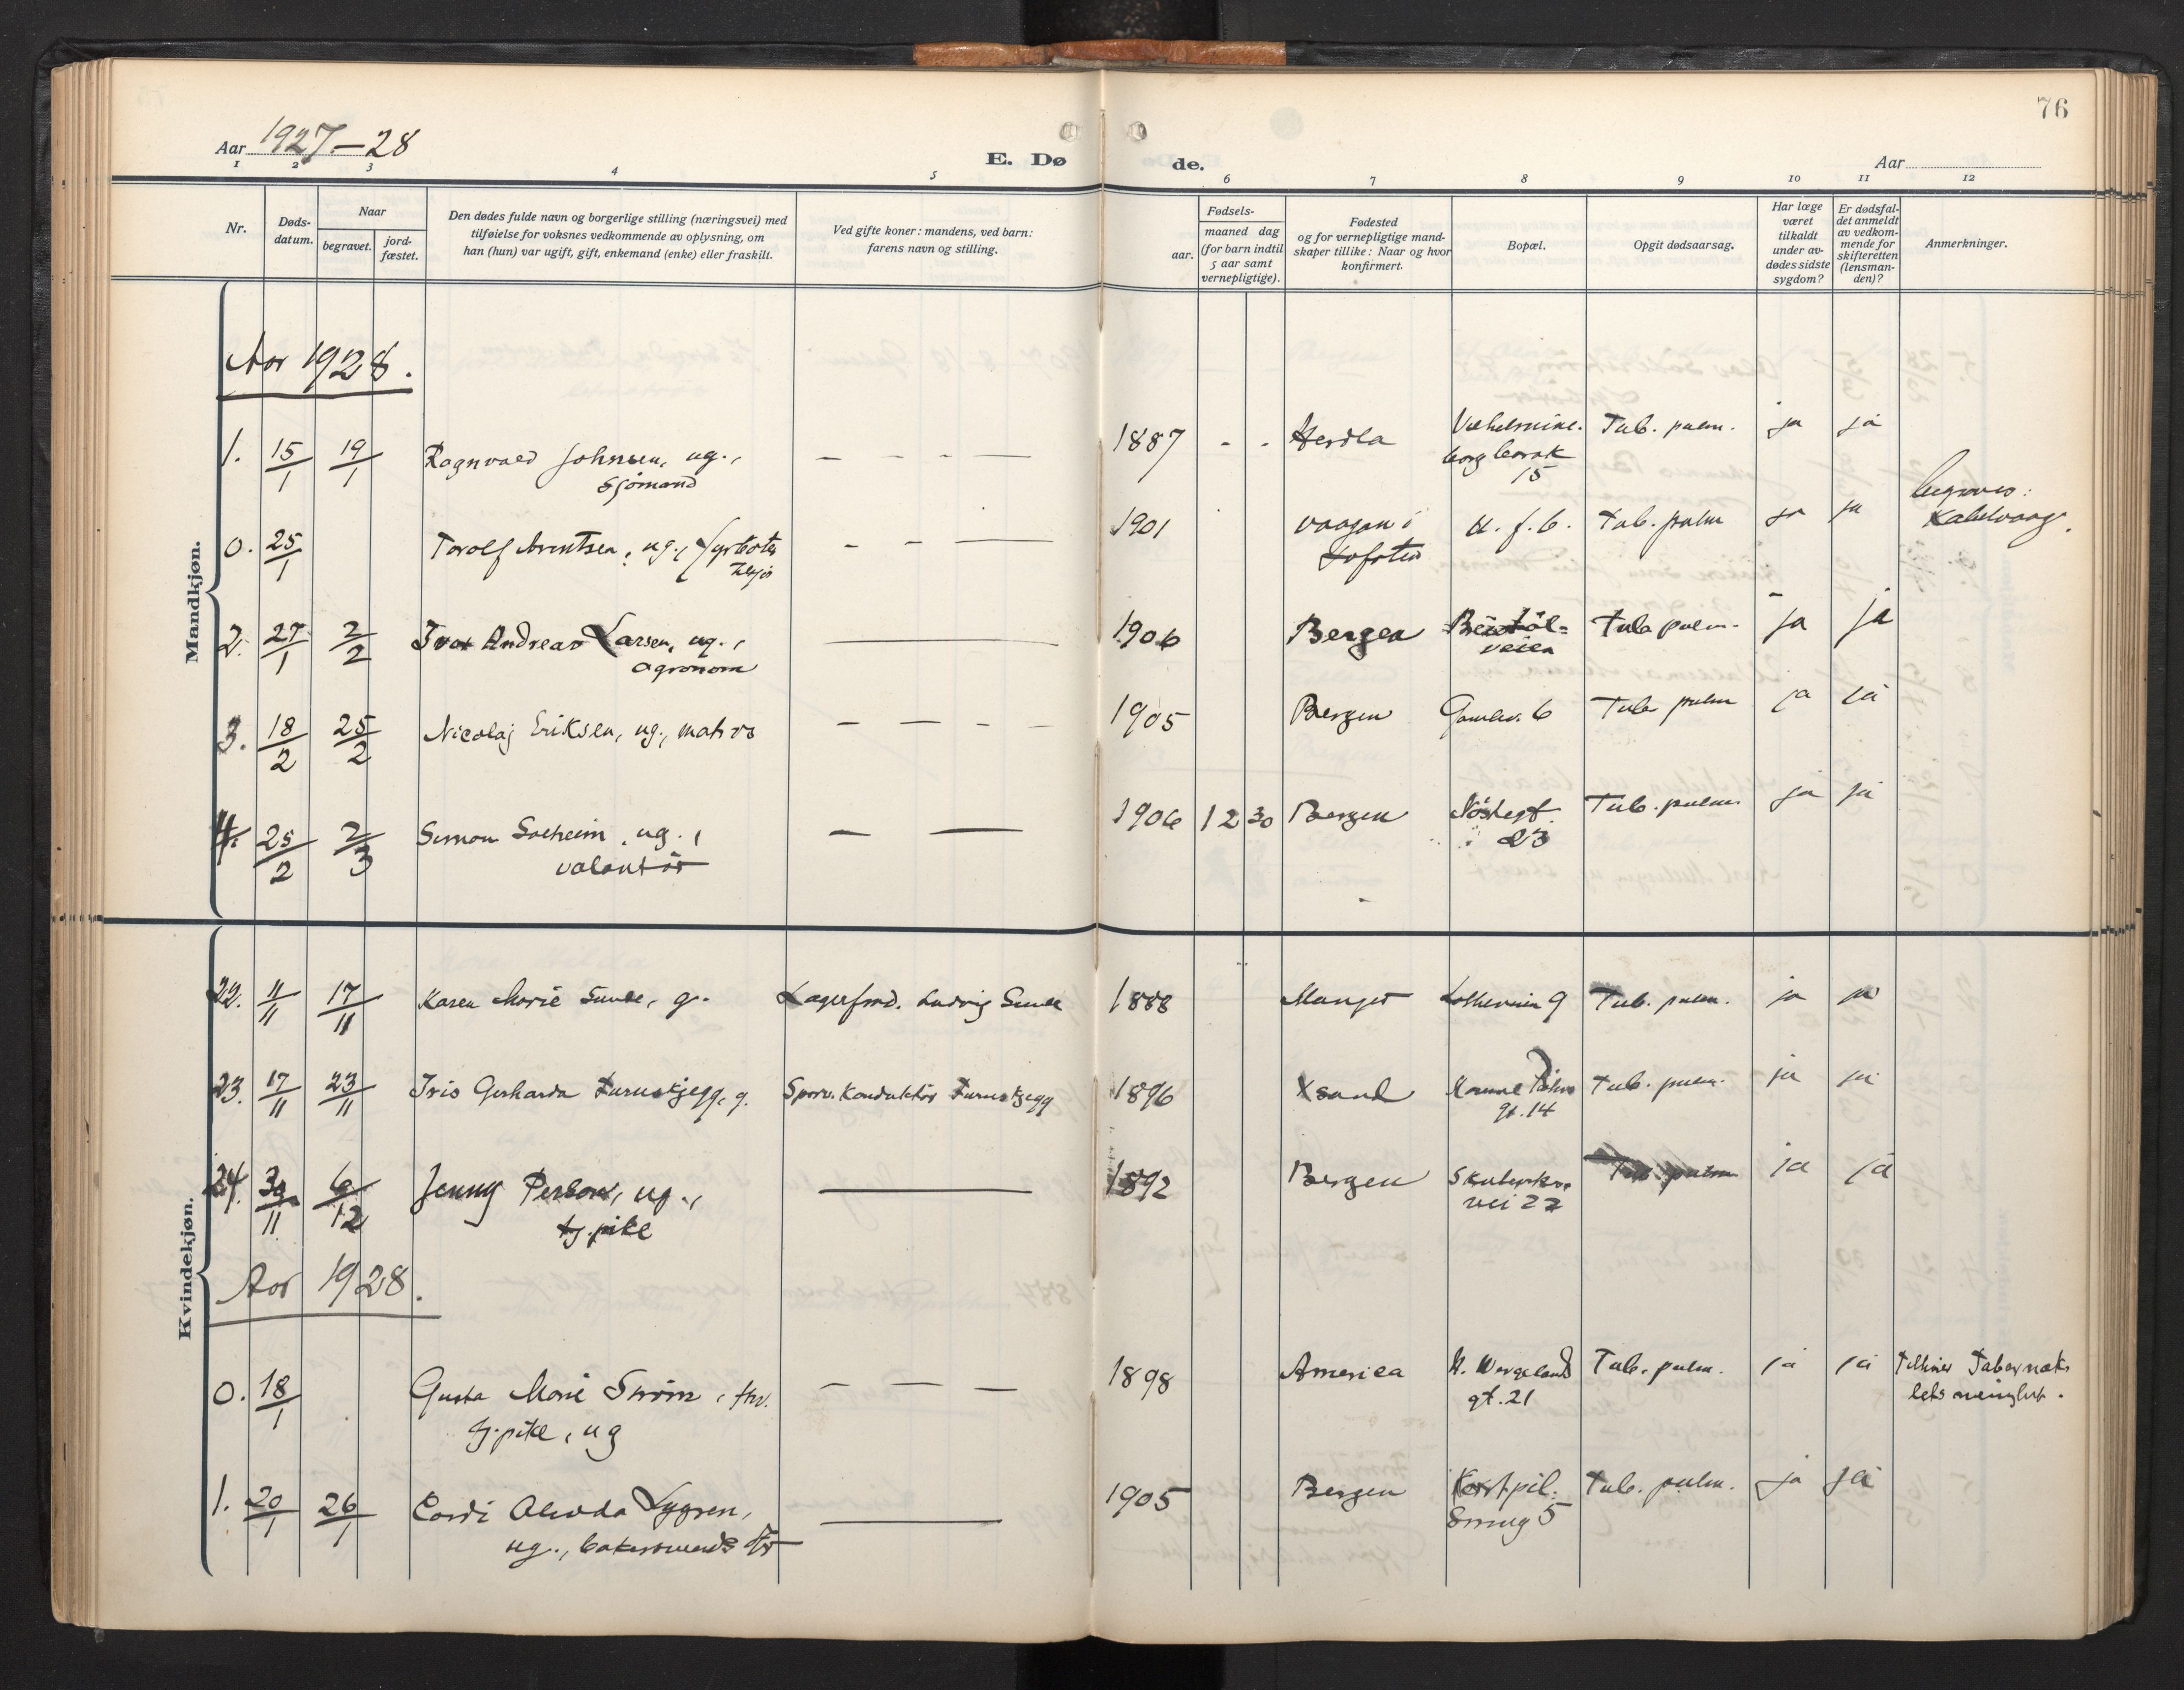 76
Aar 1927-28
E. Dø de.
Aar
1 2 3 4 5 6 7 8 9 10 11 12
Nr.
Døds-
datum.
Naar
begravet.
jord-
fæstet.
Den dødes fulde navn og borgerlige stilling (næringsvei) med
tilføielse for voksnes vedkommende av oplysning, om
han (hun) var ugift, gift, enkemand (enke) eller fraskilt.
Ved gifte koner: mandens, ved barn:
farens navn og stilling.
Fødsels-
aar.
maaned dag
(for barn indtil
5 aar samt
vernepligtige).
Fødested
og for vernepligtige mand-
skaper tillike: Naar og hvor
konfirmert.
Bopæl.
Opgit dødsaarsag.
Har læge
været
tilkaldt
under av-
dødes sidste
sygdom?
Er dødsfal-
det anmeldt
av vedkom-
mende for
skifteretten
(lensman-
den)?
Anmerkninger.
Mandkjøn.
Aar 1928.
1. 15/1 19/1 Ragnvald Johnsen, ug., – – – – 1887 - - Herdla Tub. pulm. ja ja
Sjømand 15
0. 25/1 Torolf Arentsen, ug., fyrbøter – – – 1901 Vaagan i U. f. b. Tub. pulm ja ja begraves:
Lofoten Kabelvaag.
2. 27/1 2/2 Ivar Andreas Larsen, ug., — 1906 Bergen Tub. pulm. ja ja
agronom veien
3. 18/2 25/2 Nicolaj Eriksen, ug., matros – – – – 1905 Bergen Gamlev. 6 Tub. pulm ja ja
4. 25/2 2/3 Simon Solheim, ug., – — 1906 12 30 Bergen Nøstegt. Tub. pulm. ja ja
volontør 23
Kvindekjøn.
22. 11/11 17/11 Karen Marie Sunde, g. Lagerforv. Ludvig Sunde 1888 Manger 9 Tub. pulm. ja ja
23. 17/11 23/11 Iris Gerharda Furuskjegg, g. Sporv. Konduktør Furuskjegg 1896 Xsand Tub. pulm. ja ja
gt. 14
24. 30/11 6/12 Jenny Persson, ug., — 1892 Bergen Tub. pulm ja ja
tj. pike vei 22
Aar 1928.
0. 18/1 Gusta Marie Strøm, fhv. – – – 1898 America H. Wergelands Tub. pulm. ja ja Tilhører Tabernak-
tj. pike, ug gt. 21 lets menighet.
1. 20/1 26/1 Cordi Alvida Lygren, — 1905 Bergen Tub. pulm. ja ja
ug., Smug 5